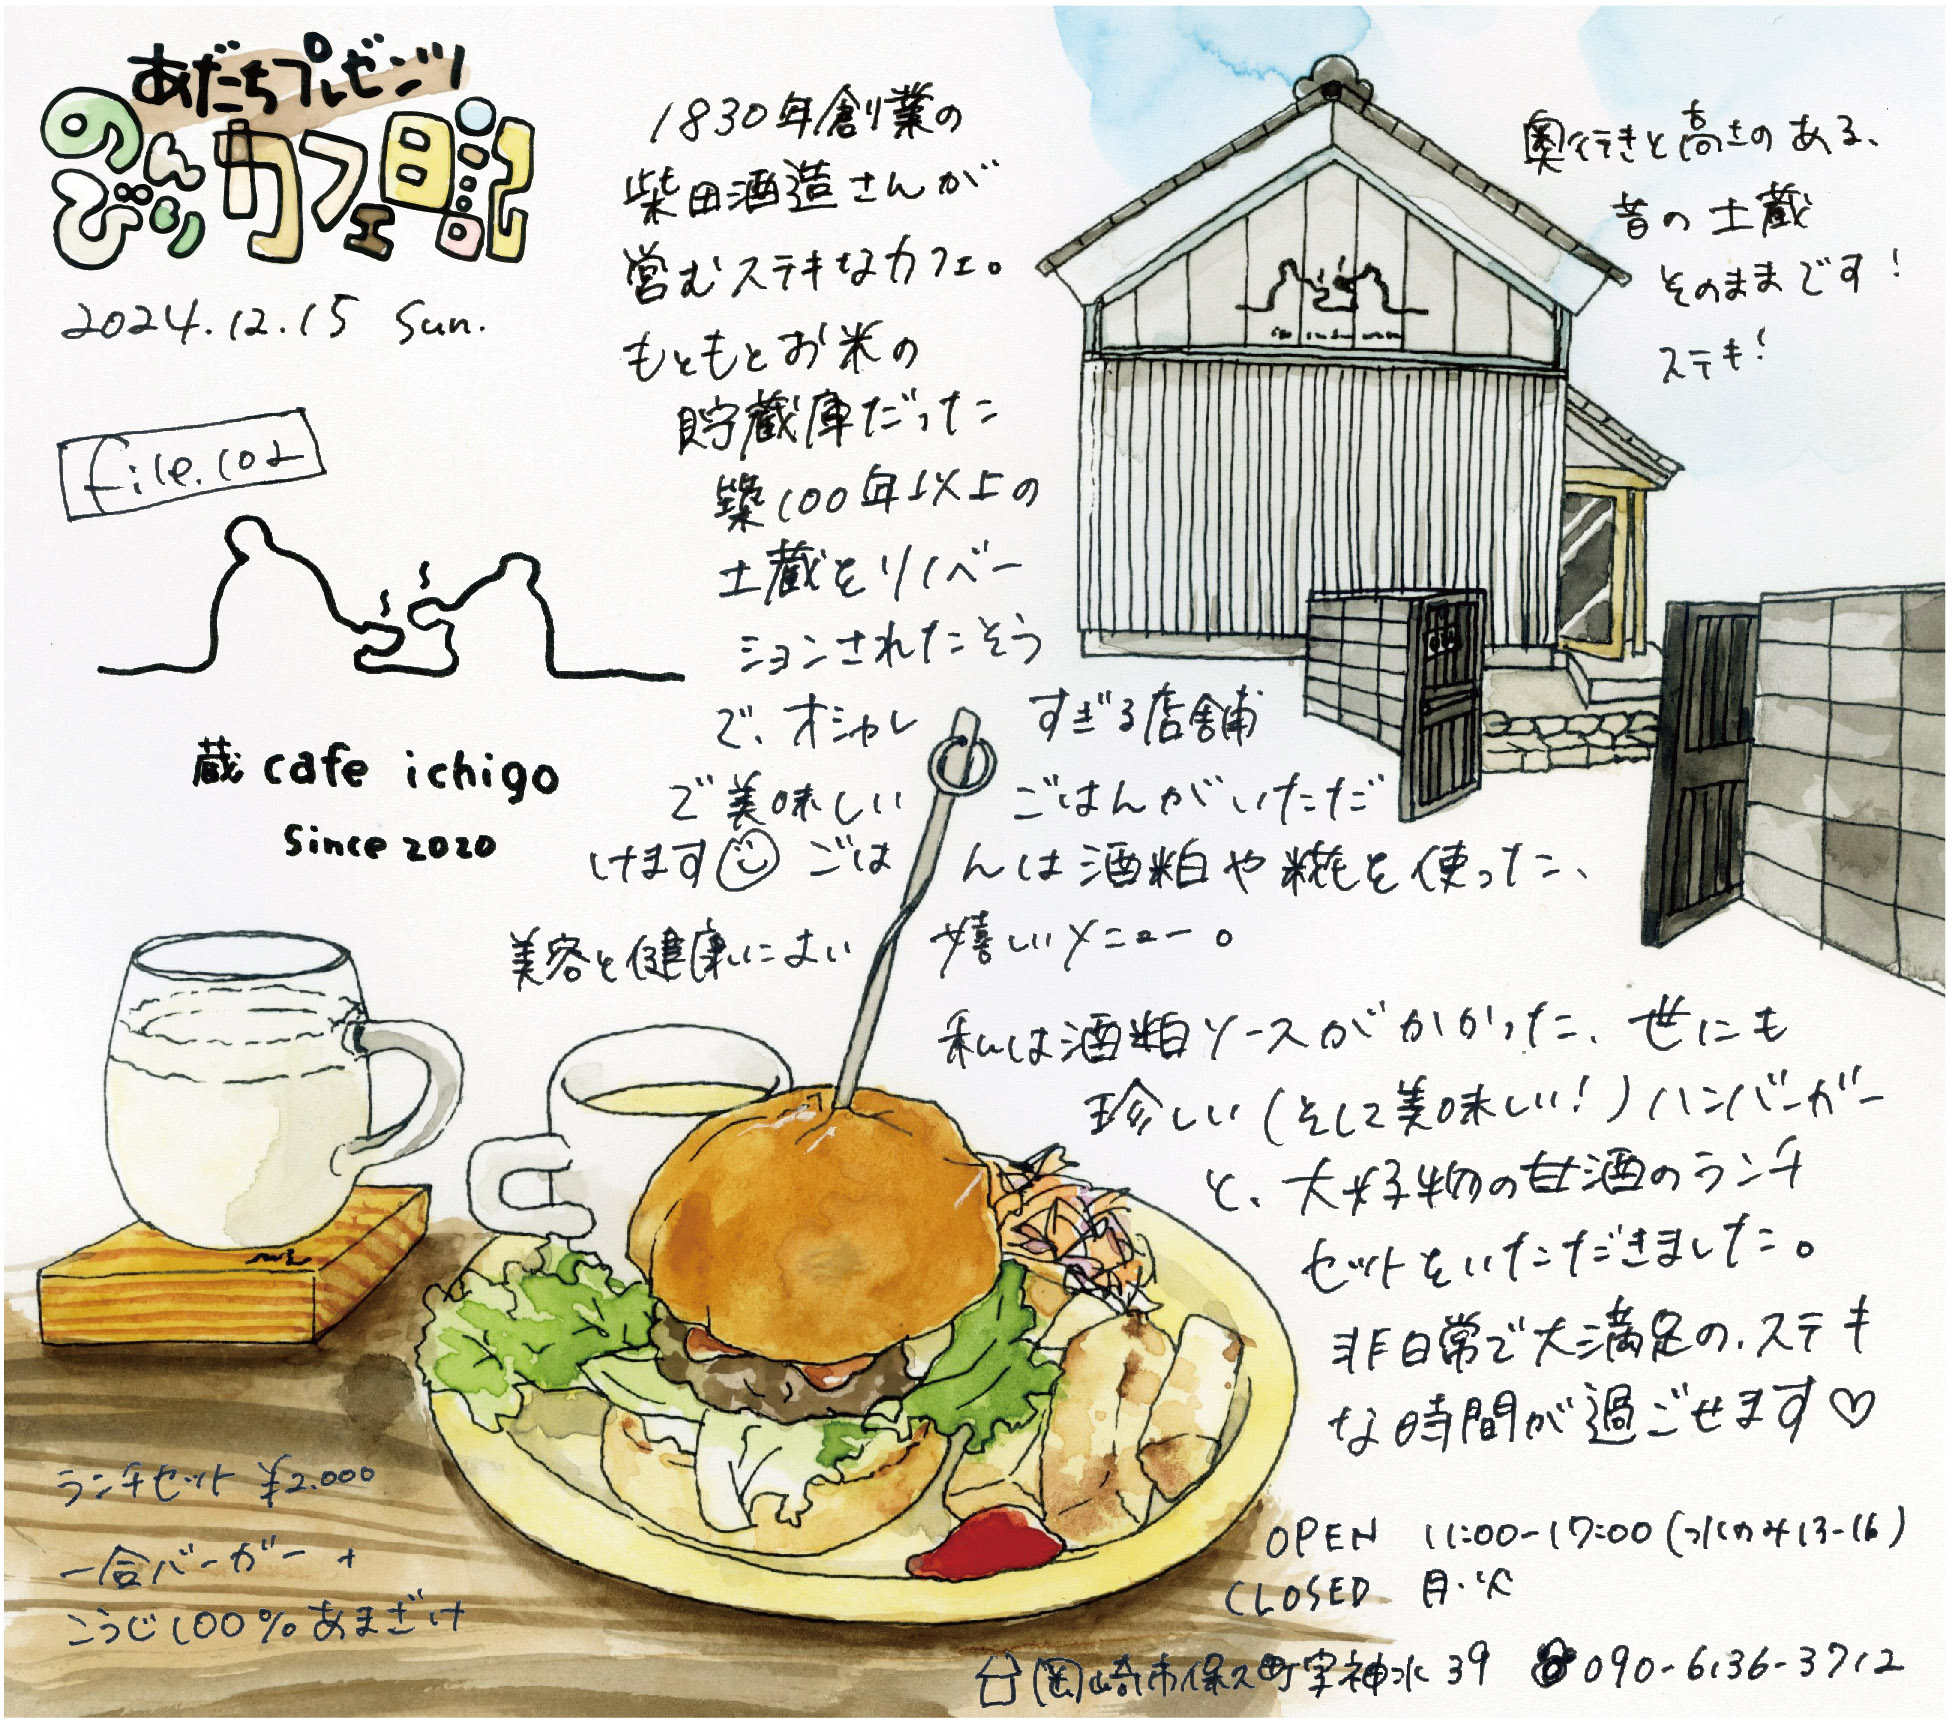 あだちプレゼンツ
のんびりカフェ日記
2024.12.15 Sun.
file.102
蔵 cafe ichigo
since 2020
1830年創業の
柴田酒造さんが
営むステキなカフェ。
もともとお米の
貯蔵庫だった
築100年以上の
土蔵をリノベー
ションされたそう
で、オシャレすぎる店舗
で美味しいごはんがいただ
けます ごはんは酒粕や糀を使った、
美容と健康によい嬉しいメニュー。
私は酒粕ソースがかかった、世にも
珍しい(そして美味しい!)ハンバーガー
と、大好物の甘酒のランチ
セットをいただきました。
非日常で大満足の、ステキ
な時間が過ごせます♡
奥行きと高さのある、
昔の土蔵
そのままです!
ステキ!
ランチセット ¥2.000
一合バーガー +
こうじ100%あまざけ
OPEN 11:00-17:00(水のみ13-16)
CLOSED 月・火
岡崎市保久町字神水39 090-6136-3712